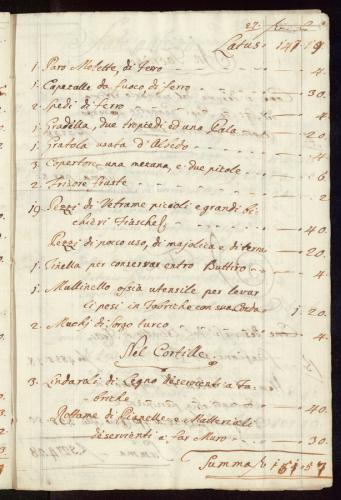 27.
Latus - 147. 19.
1. Paro Molette, di ferro - 4.
1. Capezalle da fuoco di ferro - 30.
2. Spedi di ferro - 4.
1. Gradella, due trepiedi ed una Pala - 20.
1. Gratola usata d'Alsedo - 4.
3. Copertore, una mezana, e due picole - 6.
2. frisore fruste - 2.
19. Pezzi di Vetrame piccoli e grandi bi-
chieri fiasche - 40.
Pezzi di poco uso, di majolica e di terra - 20.
1. Tinella per conservar entro Buttiro - 4.
1. Mulinello ossia utensile per levar
i pesi in Fabriche con sua Corda - 1. 20.
2. Muchj di sorgo turco - 4.
Nel Cortille
3. di Legno deservienti a fa-
briche - 40.
Rottame di Pianelle, e Matteriali
deservienti a far Muro - 30.
Summa f 151. 57